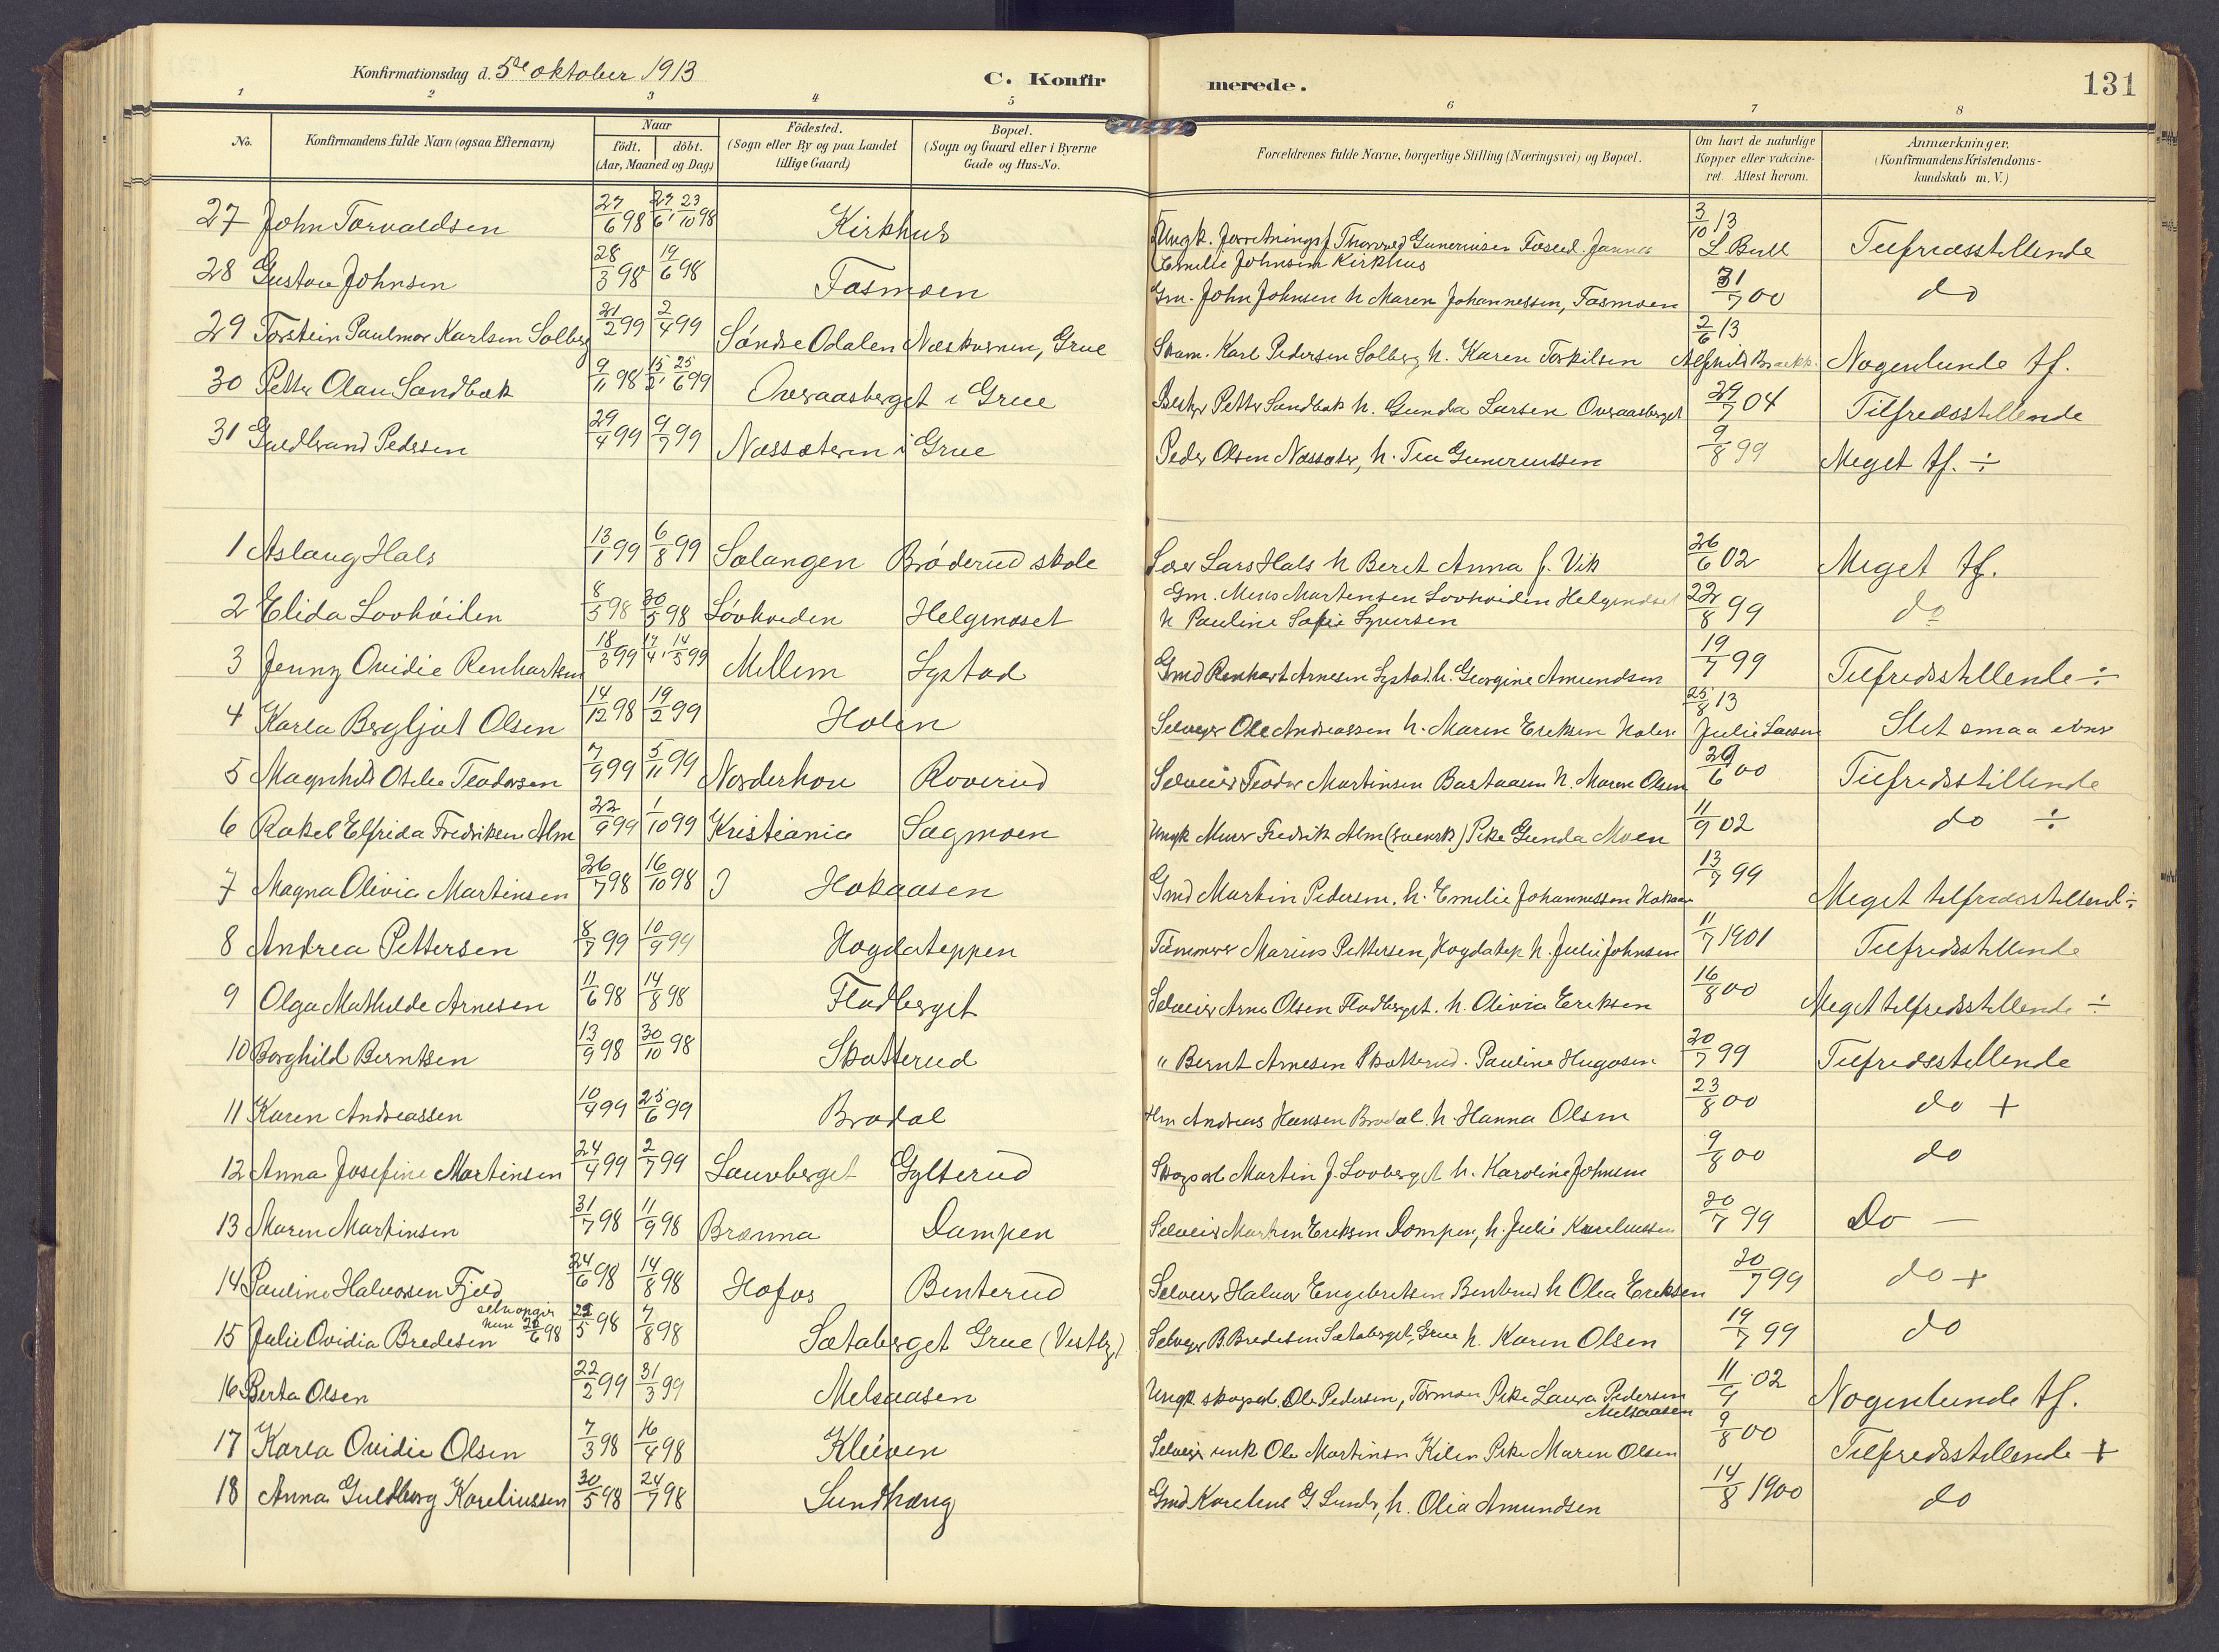 Konfirmationsdag d. 5de oktober 1913
C. Konfirmerede.
131
1 2 3 4 5 6 7 8
No. Konfirmandens fulde Navn (ogsaa Efternavn) Naar födt. döbt. (Aar, Maaned og Dag) Födested. (Sogn eller By og paa Landet tillige Gaard) Bopæl. (Sogn og Gaard eller i Byerne Gade og Hus-No. Forældrenes fulde Navne, borgerlige Stilling (Næringsvei) og Bopæl. Om havt de naturlige Kopper eller vakcineret. Attest herom. Anmærkninger. (Konfirmandens Kristendomskundskab m. V.)
27 John Torvaldsen 27/6 98 27/6, 23/10 98 Kirkhus Ungk. Gunerius Emilie Johnsen Kirkhus 3/10 13 L. Bull Tilfredsstillende
28 Gustav Johnsen 28/3 98 19/6 98 Tasmoen Gm. John Johnsen h. Maren Johannessen, Tasmoen 31/7 00 do
29 Torstein Paulmar Karlsen Solberg 21/2 99 2/4 99 Söndre Odalen Grue Karl Pedersen Solberg h. Karen Torkilsen 2/6 13 Nogenlunde tf.
30 Petter Olau Sandbak 9/11 98 15/2, 25/6 99 Overaasberget i Grue Petter Sandbak h. Gunda Larsen Overaasberget 29/7 04 Tilfredsstillende
31 Guldbrand Pedersen 29/4 99 9/7 99 Næssæteren i Grue Peder Olsen Næssæter, h. Tea Gunerussen 9/8 99 Meget tf. ÷
1 Aslaug Hals 13/1 99 6/8 99 Salangen Bröderud skole Lærer Lars Hals h Beret Anna f. Vik 26/6 02 Meget tf.
2 Elida Lovhöiden 8/5 98 30/5 98 Lövhöiden Helgenæset Gm. Martensen Lovhöiden h Pauline Sofie Syversen 22/8 99 do
3 Jenny Ovidie Renhartsen 18/3 99 17/4, 14/5 99 Mellem Systad Gmd Renhart Arnesen Systad. h. Georgine Amundsen 19/7 99 Tilfredsstillende ÷
4 Karla Bergljot Olsen 14/12 98 19/2 99 Holen Selveger Ole Andreassen h. Maren Eriksen Holen 25/8 13 Julie Larsen Slet smaa evner
5 Magnhild Otilie Teodorsen 7/9 99 5/11 99 Norderhov Roverud Selveier Teodor Martinsen Bastaasen h. Maren Olsen 29/6 00 Tilfredsstillende
6 Rakel Elfrida Fredriksen Alm 22/9 99 1/10 99 Kristiania Sagmoen Ungk Murer Fredrik Alm (svensk) Pike Gunda Moen 11/9 02 do ÷
7 Magna Olivia Martinsen 26/7 98 16/10 98 Hokaasen Gmd Martin Pedersen. h. Emilie Johannessen Hokaas 13/7 99 Meget tilfredsstillend ÷
8 Andrea Pettersen 8/7 99 10/9 99 Hogdateppen Tömmer Marius Pettersen, Hogdatep h. Julie Johnsen 11/7 1901 Tilfredsstillende
9 Olga Mathilde Arnesen 11/6 98 14/8 98 Fladberget Selveier Arne Olsen Fladberget. h. Olivia Eriksen 16/8 00 Meget tilfredsstillende ÷
10 Borghild Berntsen 13/9 98 30/10 98 Skatterud " Bernt Arnesen Skatterud. Pauline Hugosen 20/7 99 Tilfredsstillende
11 Karen Andreassen 10/4 99 25/6 99 Bradal Hm Andreas Hansen Bradal. h. Hanna Olsen 23/8 00 do +
12 Anna Josefine Martinsen 24/4 99 2/7 99 Lauvberget Gylterud Skogsarb Martin J. Lovberget h. Karoline Johnsen 9/8 00 do
13 Maren Martinsen 31/7 98 11/9 98 Brænna Dampen Selveier Martin Eriksen Dampen, h. Julie Kareliussen 20/7 99 Do —
14 Pauline Halvorsen Fjeld 24/6 98 14/8 98 Hofos Benterud Selveier Halvor Engebretsen Benterud h Olea Eriksen 20/7 99 do +
15 Julie Ovidia Bredesen selv opgir 26/6 98 25/5 98 7/8 98 Sætaberget Grue (Vestby) Selveger B. Bredesen Sætaberget, Grue h. Karen Olsen 19/7 99 do
16 Berta Olsen 22/2 99 31/3 99 Melsaasen Ungk. skogsarb. Ole Pedersen, Tormoen Pike Laura Pedersen Melsaasen 11/9 02 Nogenlunde tf.
17 Karla Ovidie Olsen 7/3 98 16/4 98 Kleiven Selveier unk Ole Martinsen Kilen Pike Maren Olsen 9/8 00 Tilfredsstillende +
18 Anna Guldborg Kareliussen 30/5 98 24/7 98 Sundhaug Gmd Karelius G Sund, h. Olia Amundsen 14/8 1900 do